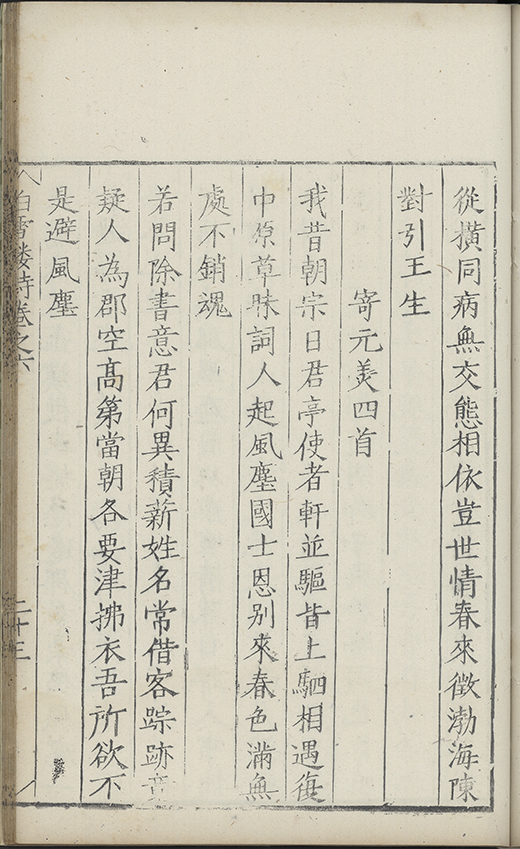 從橫同病無交態相依豈世情春來徵渤海陳
對引王生
寄元美四首
我昔朝宗日君亭使者軒並驅皆上駟相遇復
中原草昧詞人起風塵國士恩别來春色滿無
處不銷魂
若問除書意君何異積薪姓名常借客踪跡竟
疑人為郡空髙第當朝各要津拂衣吾所欲不
是避風塵
白雪楼詩卷之六
二十三